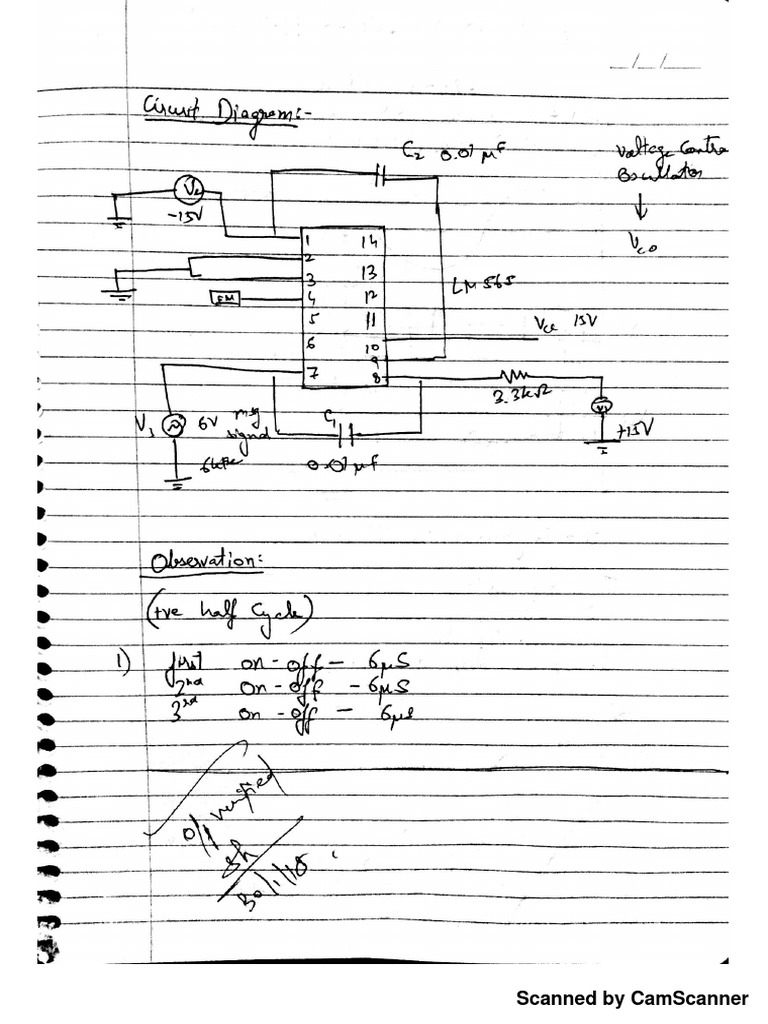 _/_/_
Circuit Diagram:-
C2 0.01 µF
Voltage Contro
Oscillator
↓
VCO
-15V
1 14
2
3 13
4 12
5 11
6 10
9
7 8
FM
LM565
Vcc 15V
3.3kΩ
+15V
Vs 6V msg signal
6kHz
C1
0.01 µF
Observation:
(+ve half Cycle)
1) first on-off - 6µS
2nd on-off - 6µS
3rd on-off - 6µs
O/P verified
30/1/18
Scanned by CamScanner